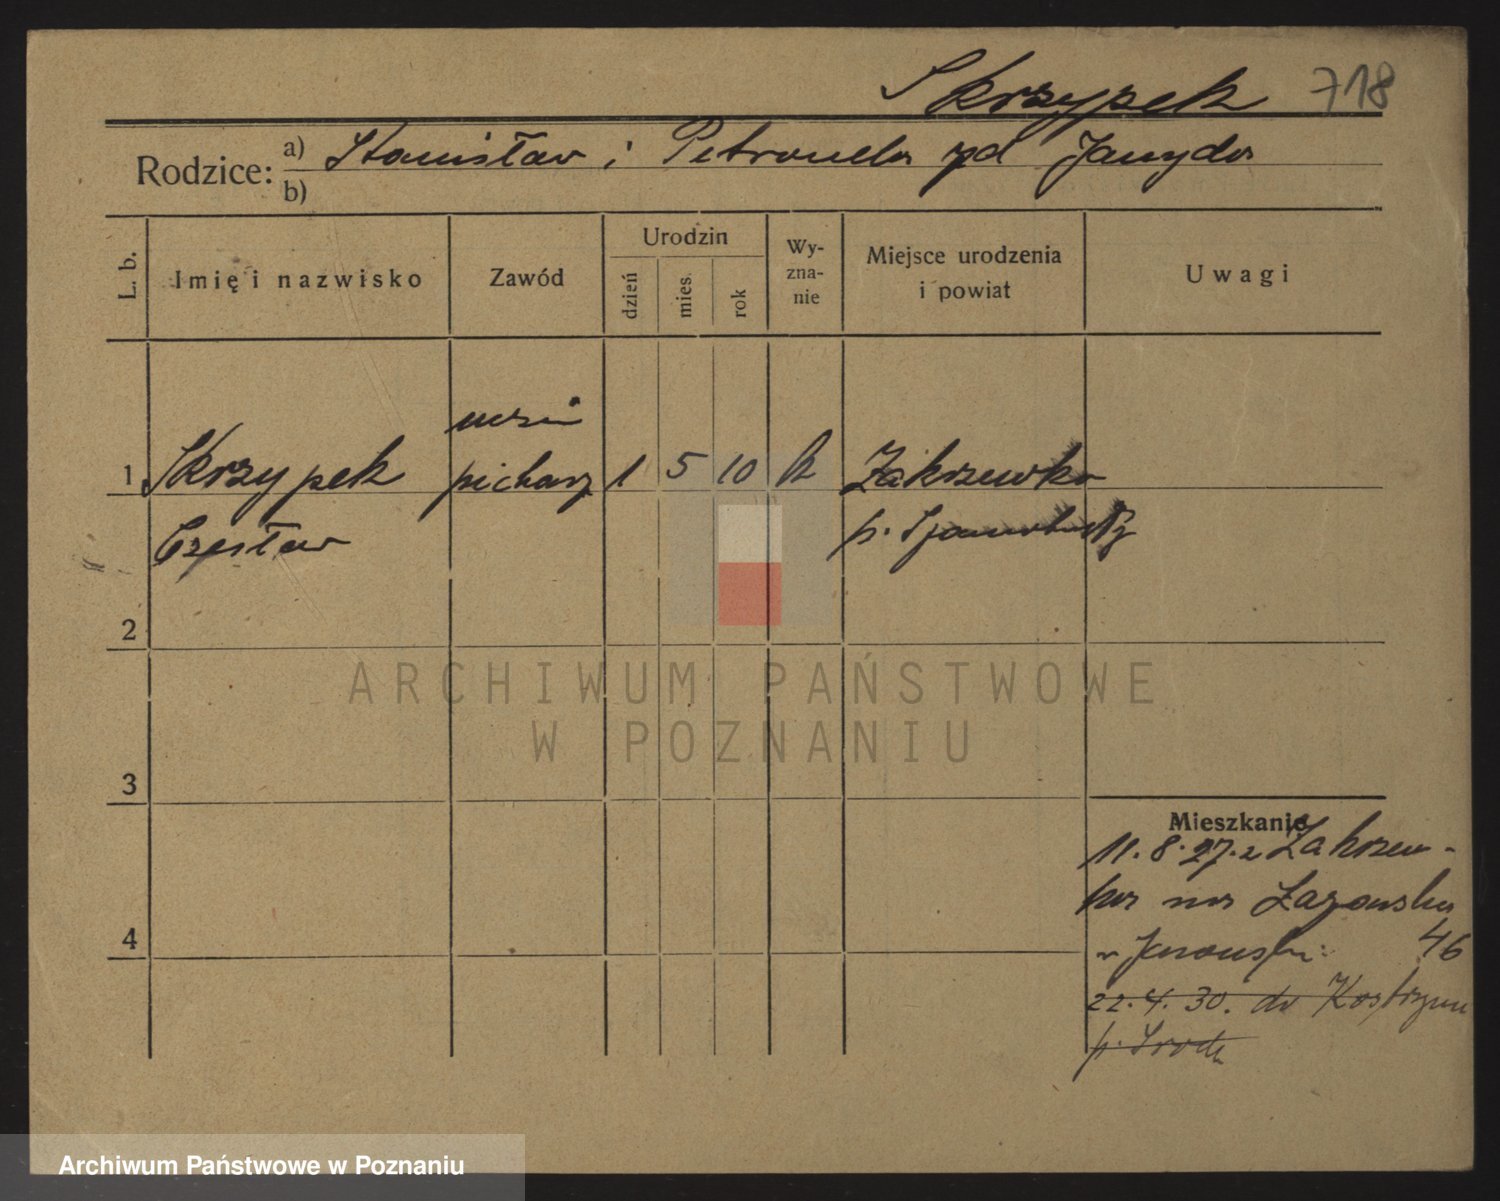 Skrzypek 718
Rodzice: a) Stanisław i Petronela zd Janyda
b)
L. b. Imię i nazwisko Zawód Urodzin Wy-zna-nie Miejsce urodzenia i powiat Uwagi
dzień mies. rok
uczeń
1 Skrzypek piekarz 1 5 10 k Zakrzewko
Czesław p. Szamotuły
2
ARCHIWUM PAŃSTWOWE
W POZNANIU
3
Mieszkanie
11.8.27. z Zakrzew-
ka na
4
46
22.4.30. do Kostrzyna
p. Środa
Archiwum Państwowe w Poznaniu